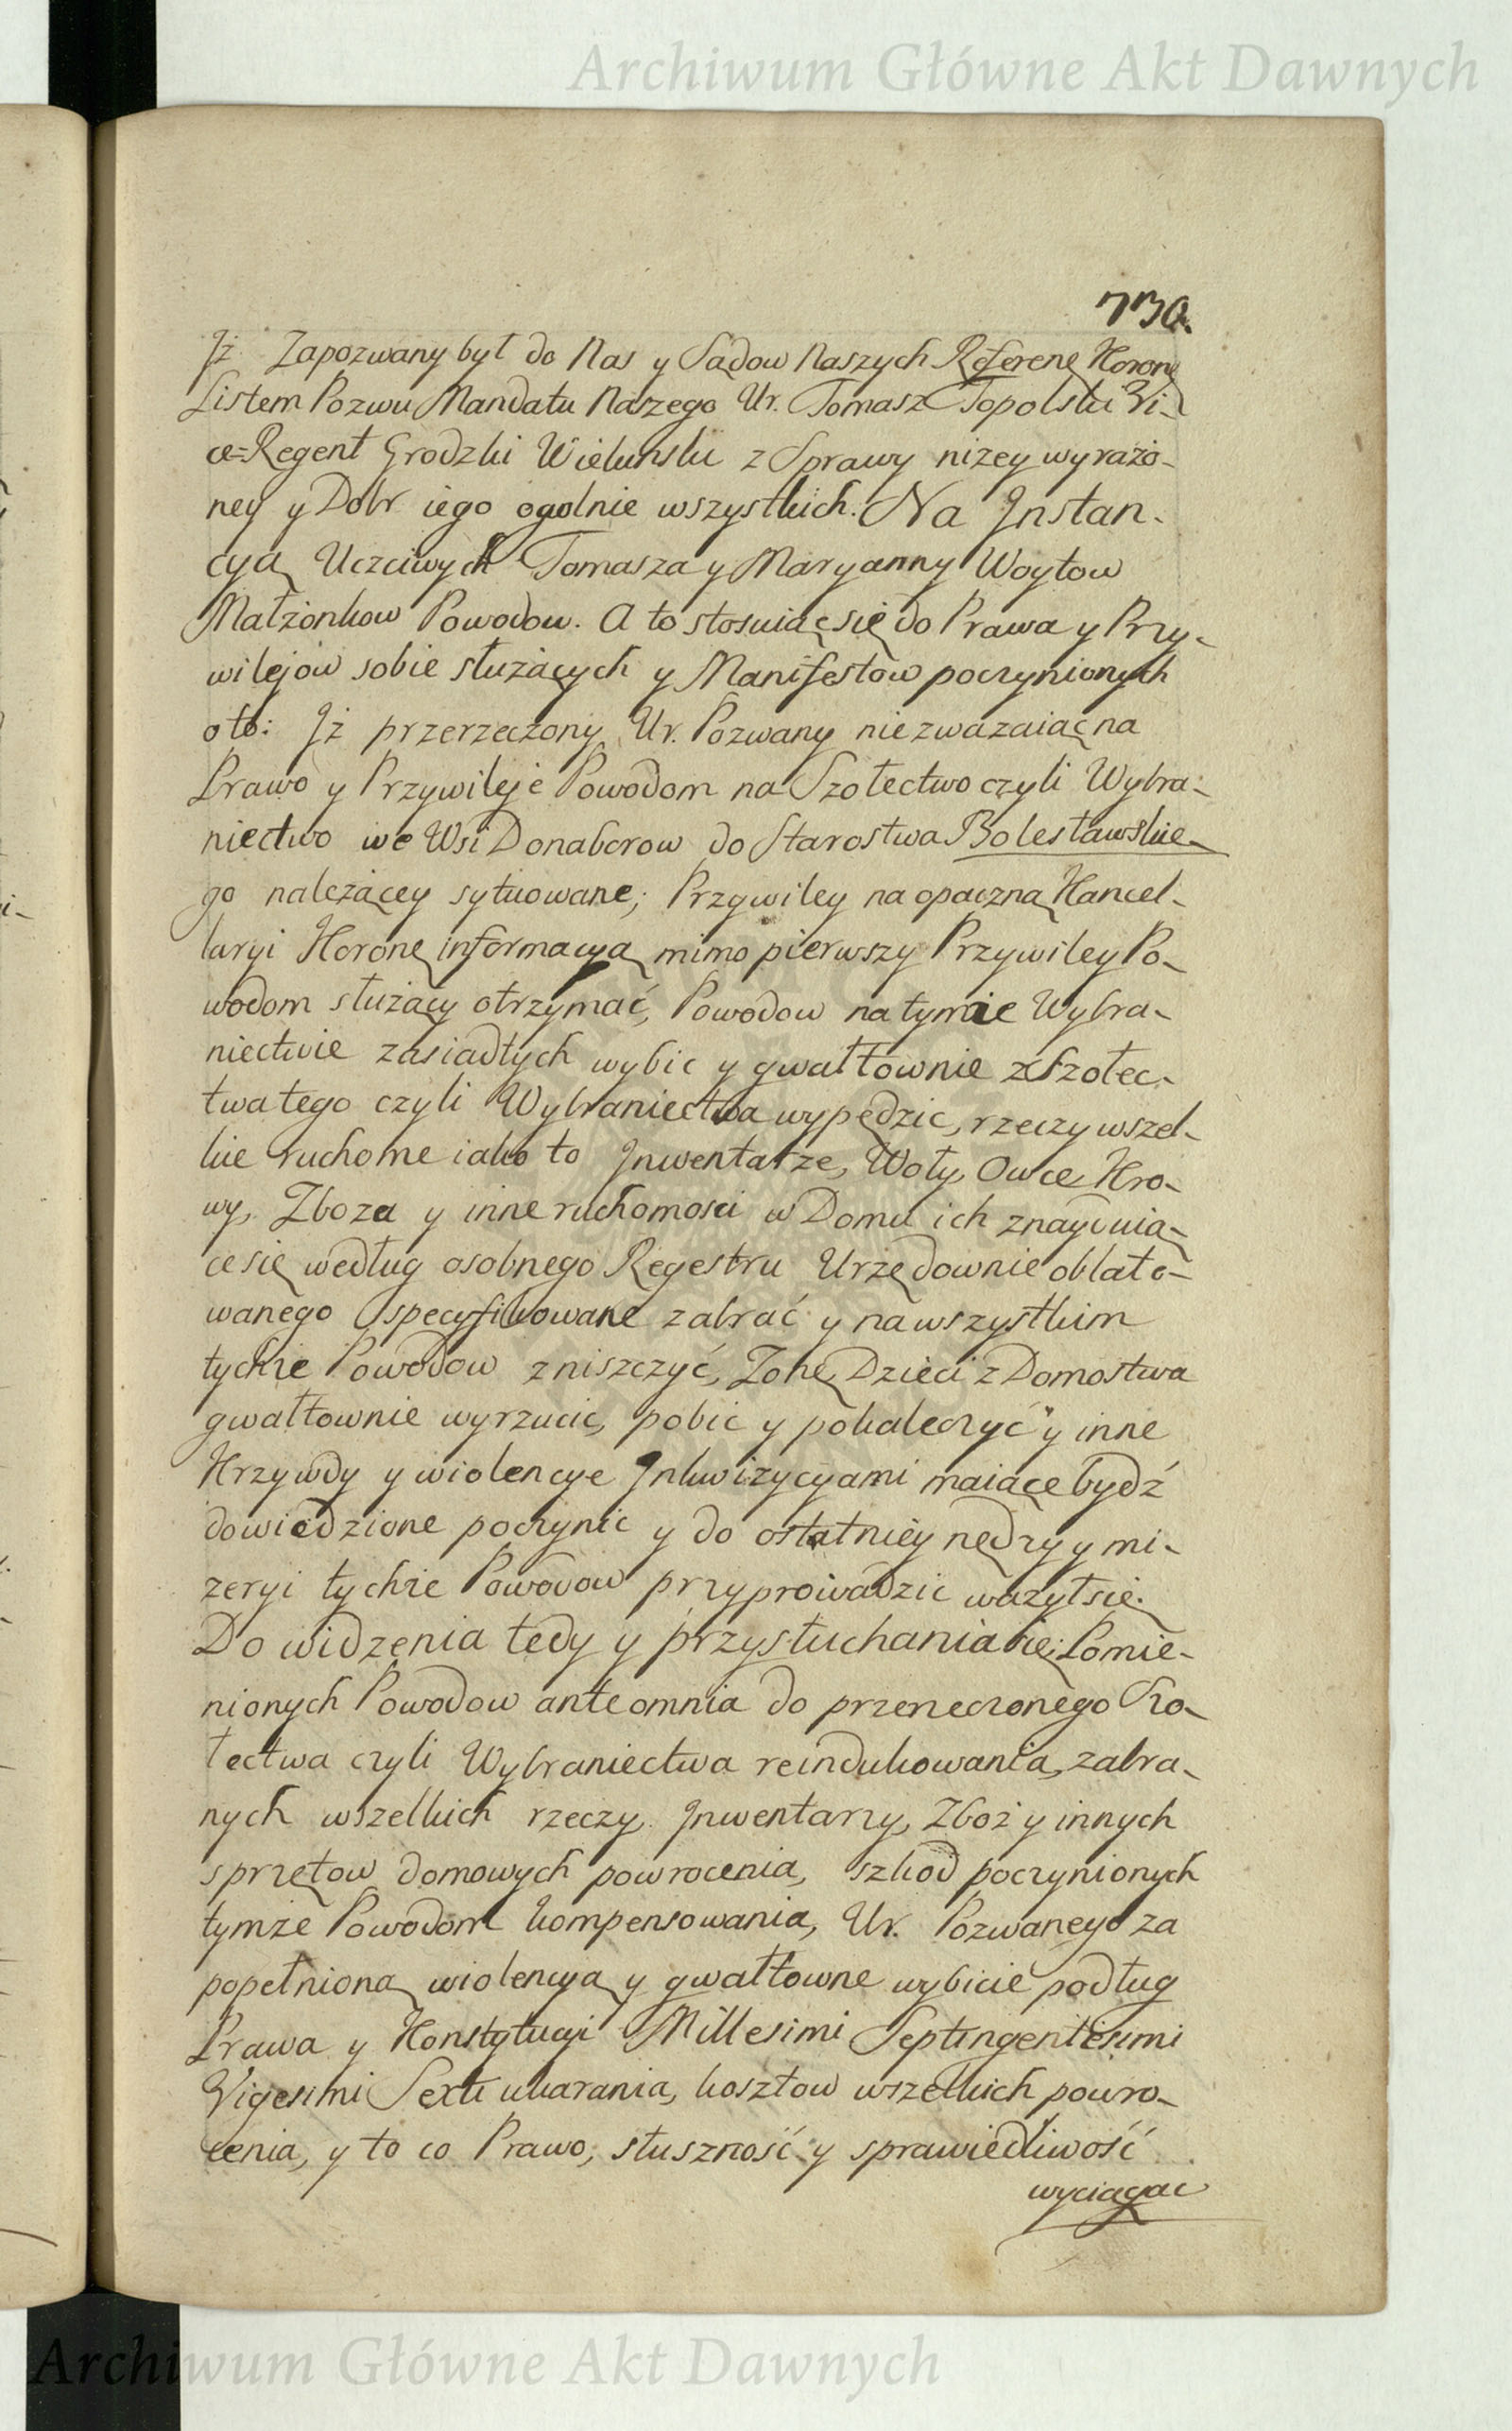 Archiwum Główne Akt Dawnych
730.
Jż Zapozwany był do Nas y Sądow Naszych Referenę Koronę
Listem Pozwu Mandatu Naszego Ur. Tomasz Topolski Vi-
ce=Regent Grodzki Wieluński z Sprawy niżey wyrażo-
ney y Dobr iego ogolnie wszystkich. Na Jnstan-
cyą Uczciwych Tomasza y Maryanny Woytow
Małżonkow Powodow. A to stosuiąc się do Prawa y Przy-
wilejow sobie służących y Manifestow poczynionych
oto: Jż przerzeczony Ur. Pozwany nie zwazaiąc na
Prawo y Przywileje Powodom na Szołectwo czyli Wybra-
niectwo we Wsi Donaborow do Starostwa Bolesławskie-
go należącey sytuowane; Przywiley na opaczną Kancel-
laryi Koronę informacyą mimo pierwszy Przywiley Po-
wodom służący otrzymać, Powodow na tymże Wybra-
niectwie zasiadłych wybic y gwałtownie z Szołec-
twa tego czyli Wybraniectwa wypędzic, rzeczy wszel-
kie ruchome iako to Jnwentarze, Woły, Owce, Kro-
wy, Zboza y inne ruchomosci w Domu ich znayduią-
ce się według osobnego Regestru Urzędownie oblato-
wanego specyfikowane zabrać y na wszystkim
tychże Powodow zniszczyć, Zonę, Dzieci z Domostwa
gwałtownie wyrzucic, pobic y pokaleczyć y inne
Krzywdy y wiolencye Jnkwizycyami maiące bydź
dowiedzione poczynic y do ostatniey nędzy y mi-
zeryi tychże Powodow przyprowadzic ważył się.
Do widzenia tedy y przysłuchania się; Pomie-
nionych Powodow ante omnia do przerzeczonego Szo-
łectwa czyli Wybraniectwa reindukowania, zabra-
nych wszelkich rzeczy, Jnwentarzy, Zboż y innych
sprzętow domowych powrocenia, szkod poczynionych
tymże Powodom kompensowania, Ur. Pozwanego za
popełnioną wiolencyą y gwałtowne wybicie podług
Prawa y Konstytucyi Millesimi Septingentesimi
Vigesimi Sexti ukarania, kosztow wszelkich powro-
cenia, y to co Prawo, słuszność y sprawiedliwość
wyciągac
Archiwum Główne Akt Dawnych